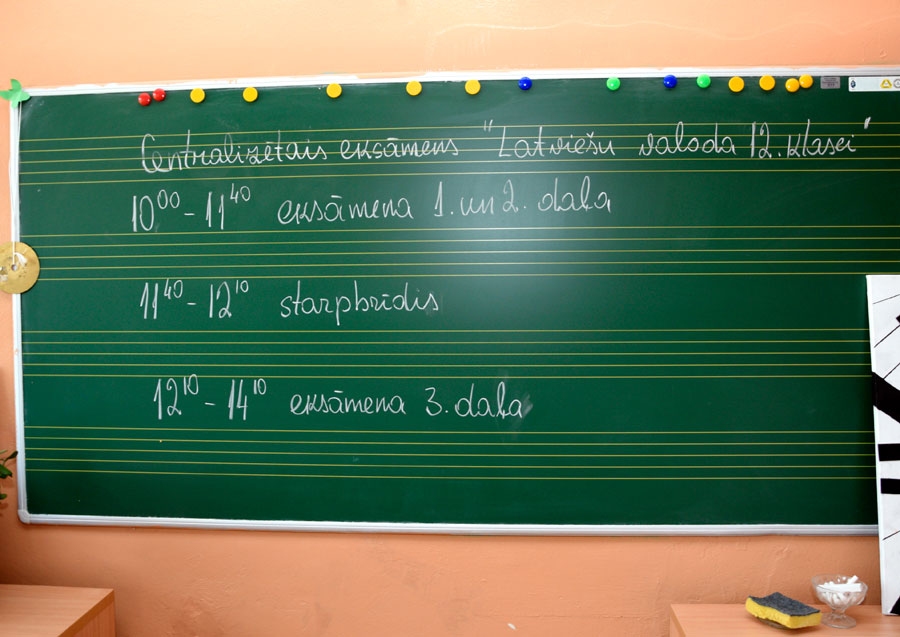 Centralizētais eksāmens "Latviešu valoda 12. klasei"
10⁰⁰ - 11⁴⁰ eksāmena 1. un 2. daļa
11⁴⁰ - 12¹⁰ starpbrīdis
12¹⁰ - 14¹⁰ eksāmena 3. daļa